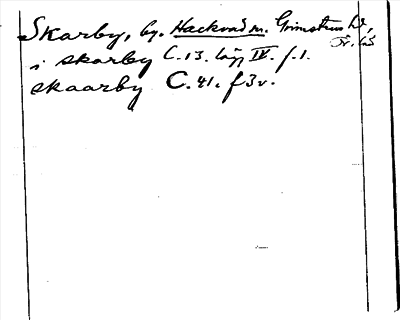 Skarby, by. Hackvad sn. Grimstens hd,
Ör. län
i skarby C.13. lägg IV. f.1.
skaarby C.41. f 3v.